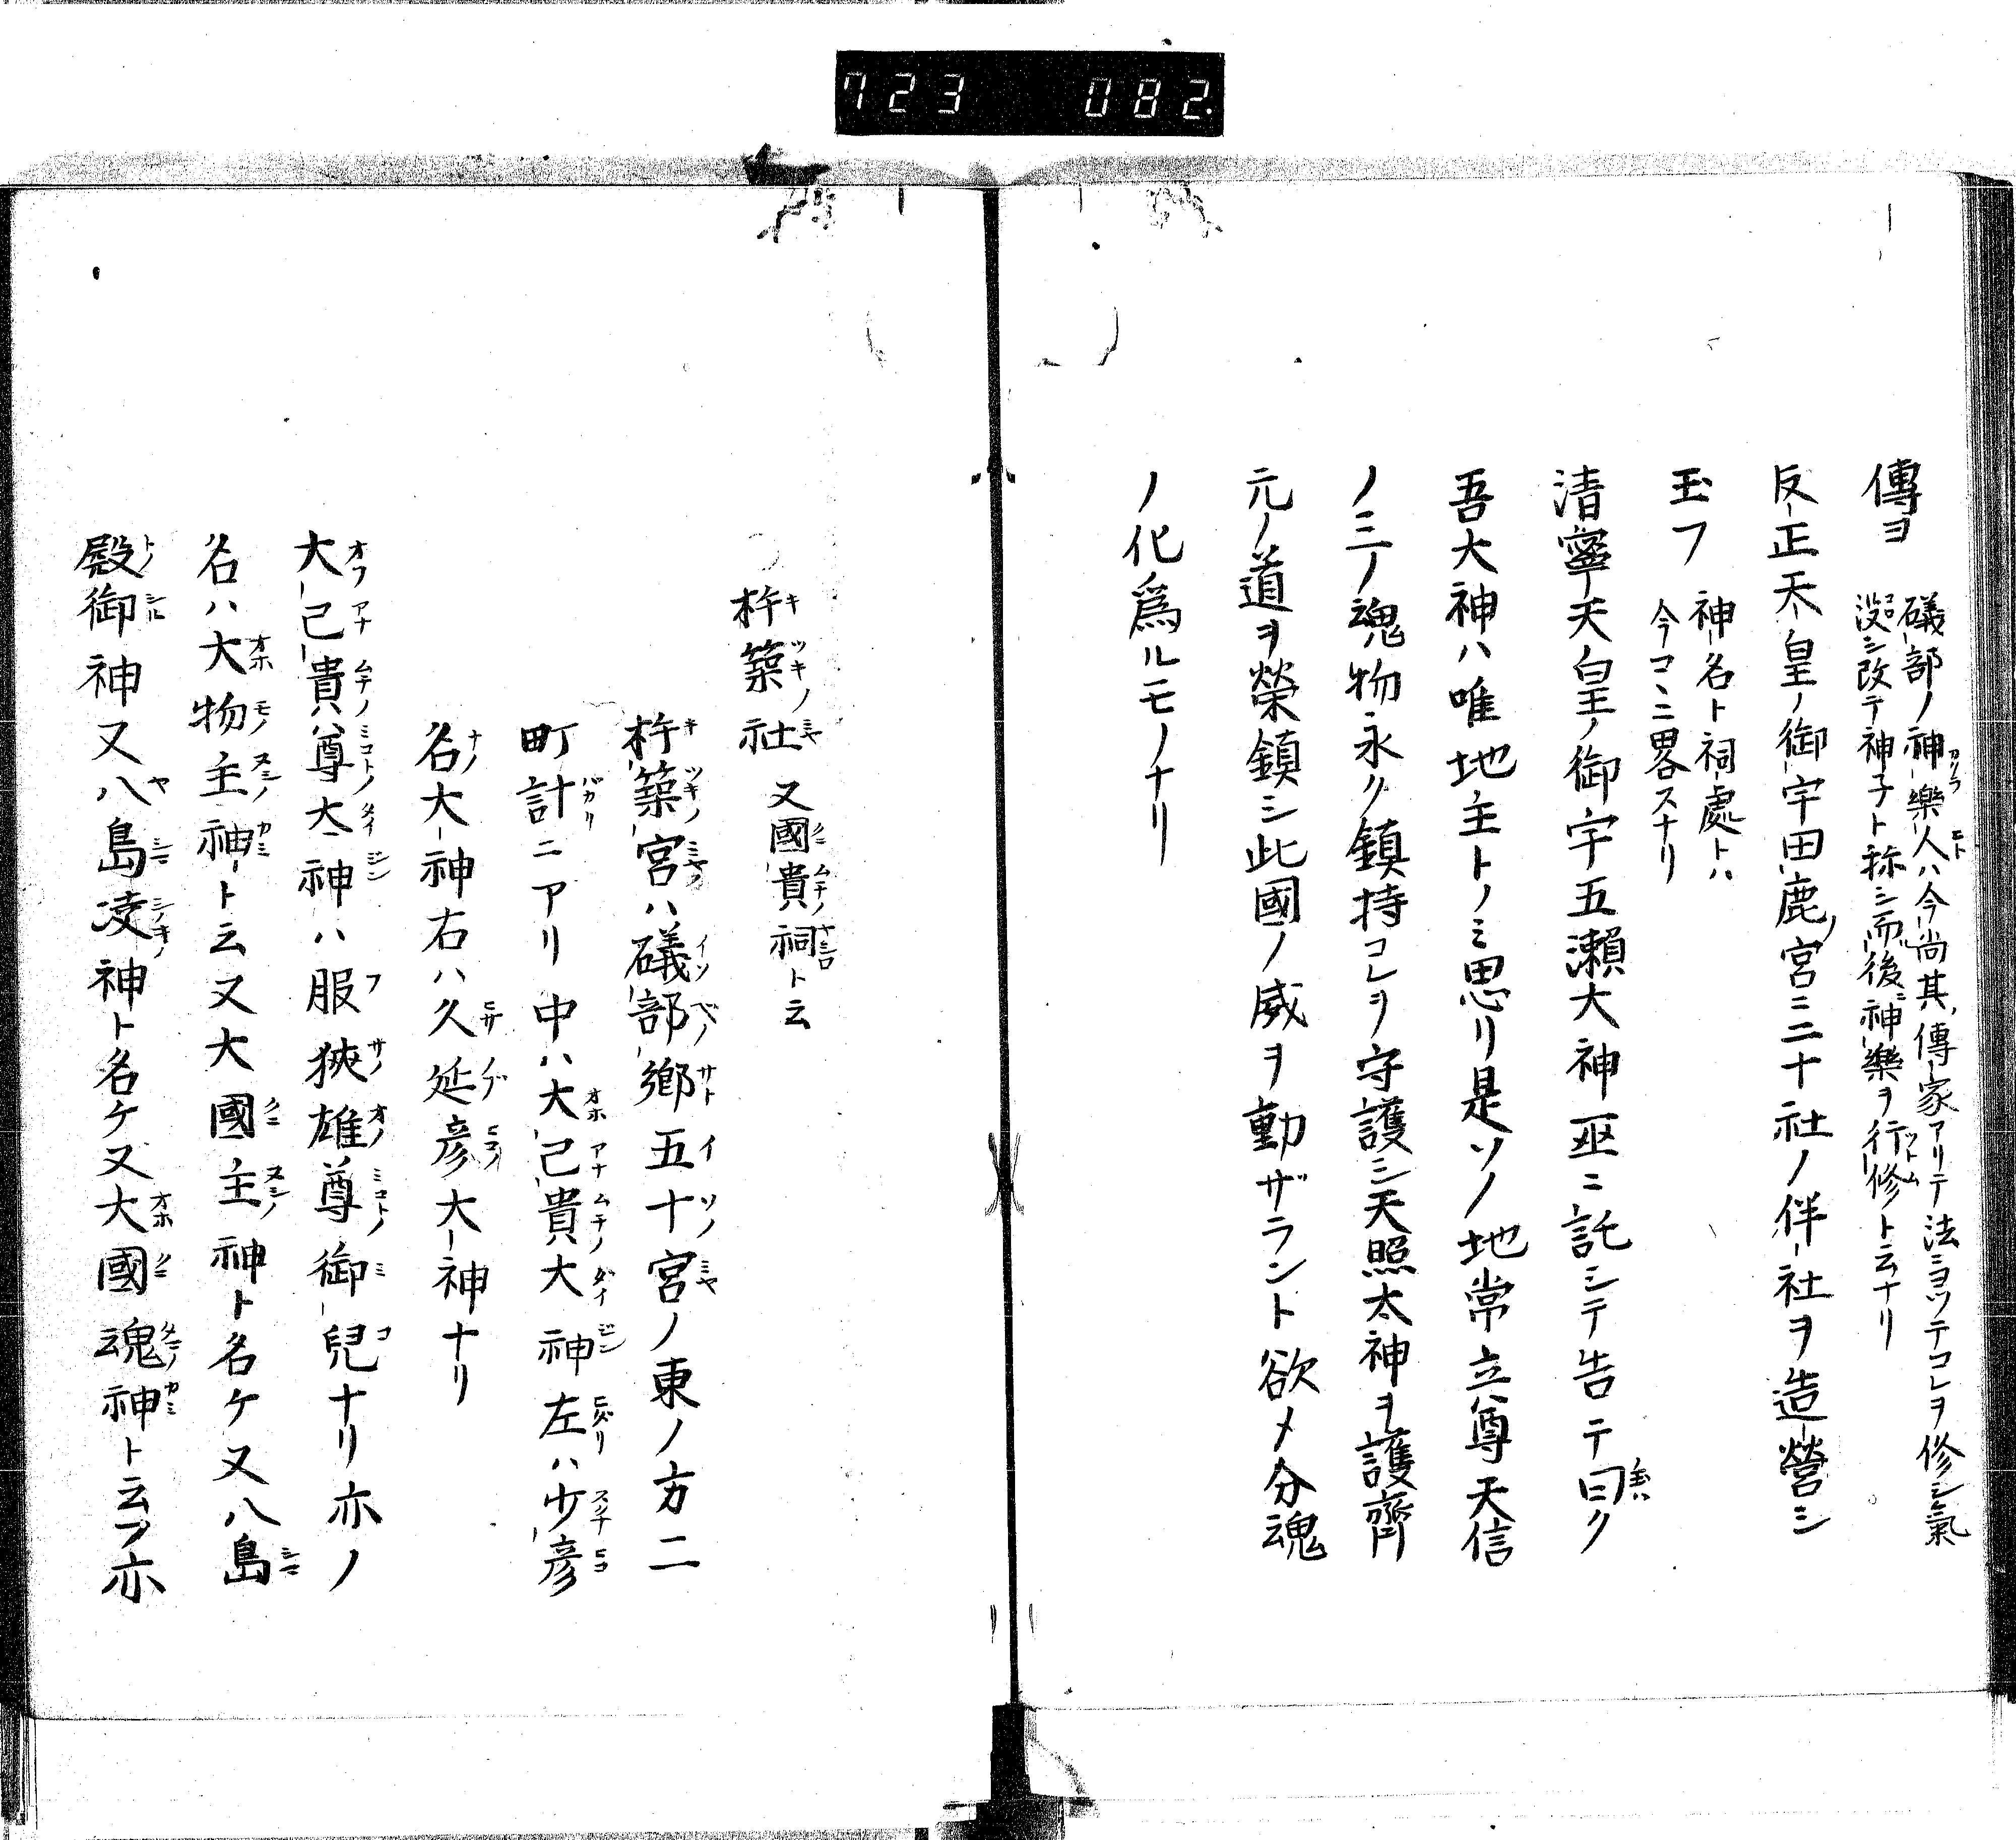 723 082
傳ヲ
礒部ノ神樂人ハ今尚其傳家アリテ法ニヨツテコレヲ修シ氣
沒シ改テ神子ト称シ而後神樂ヲ行修ト云ナリ
反正天皇ノ御宇田鹿宮ニ二十社ノ伴社ヲ造營シ
玉フ
神名ト祠處トハ
今コヽニ畧スナリ
清寧天皇ノ御宇五瀬大神巫ニ託シテ告テ曰ク
吾大神ハ唯地主トノミ思リ是ソノ地常立尊天信
ノ三ノ魂物永ク鎮持コレヲ守護シ天照太神ヲ護齊
元ノ道ヲ榮鎮シ此國ノ威ヲ動ザラント欲メ分魂
ノ化爲ルモノナリ
杵築社 又國貴祠ト云
杵築宮ハ礒部鄉五十宮ノ東ノ方二
町計ニアリ中ハ大己貴大神左ハ少彦
名大神右ハ久延彦大神ナリ
大己貴尊大神ハ服狹雄尊御兒ナリ亦ノ
名ハ大物主神ト云又大國主神ト名ケ又八島
殿御神又八島凌神ト名ケ又大國魂神ト云フ亦